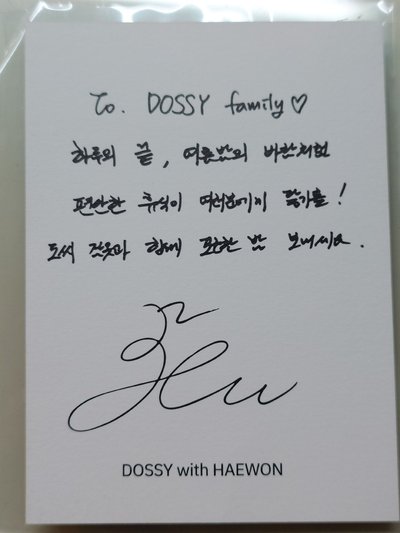 To. DOSSY family♡
하루의 끝, 여름밤의 바람처럼
편안한 휴식이 여러분에게 닿기를!
도씨 잠옷과 함께 포근한 밤 보내세요.
DOSSY with HAEWON